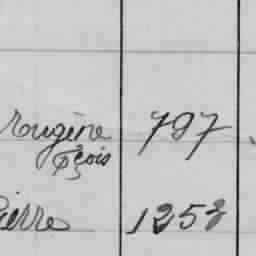 Eugène 797
Fçois
Pierre 1253